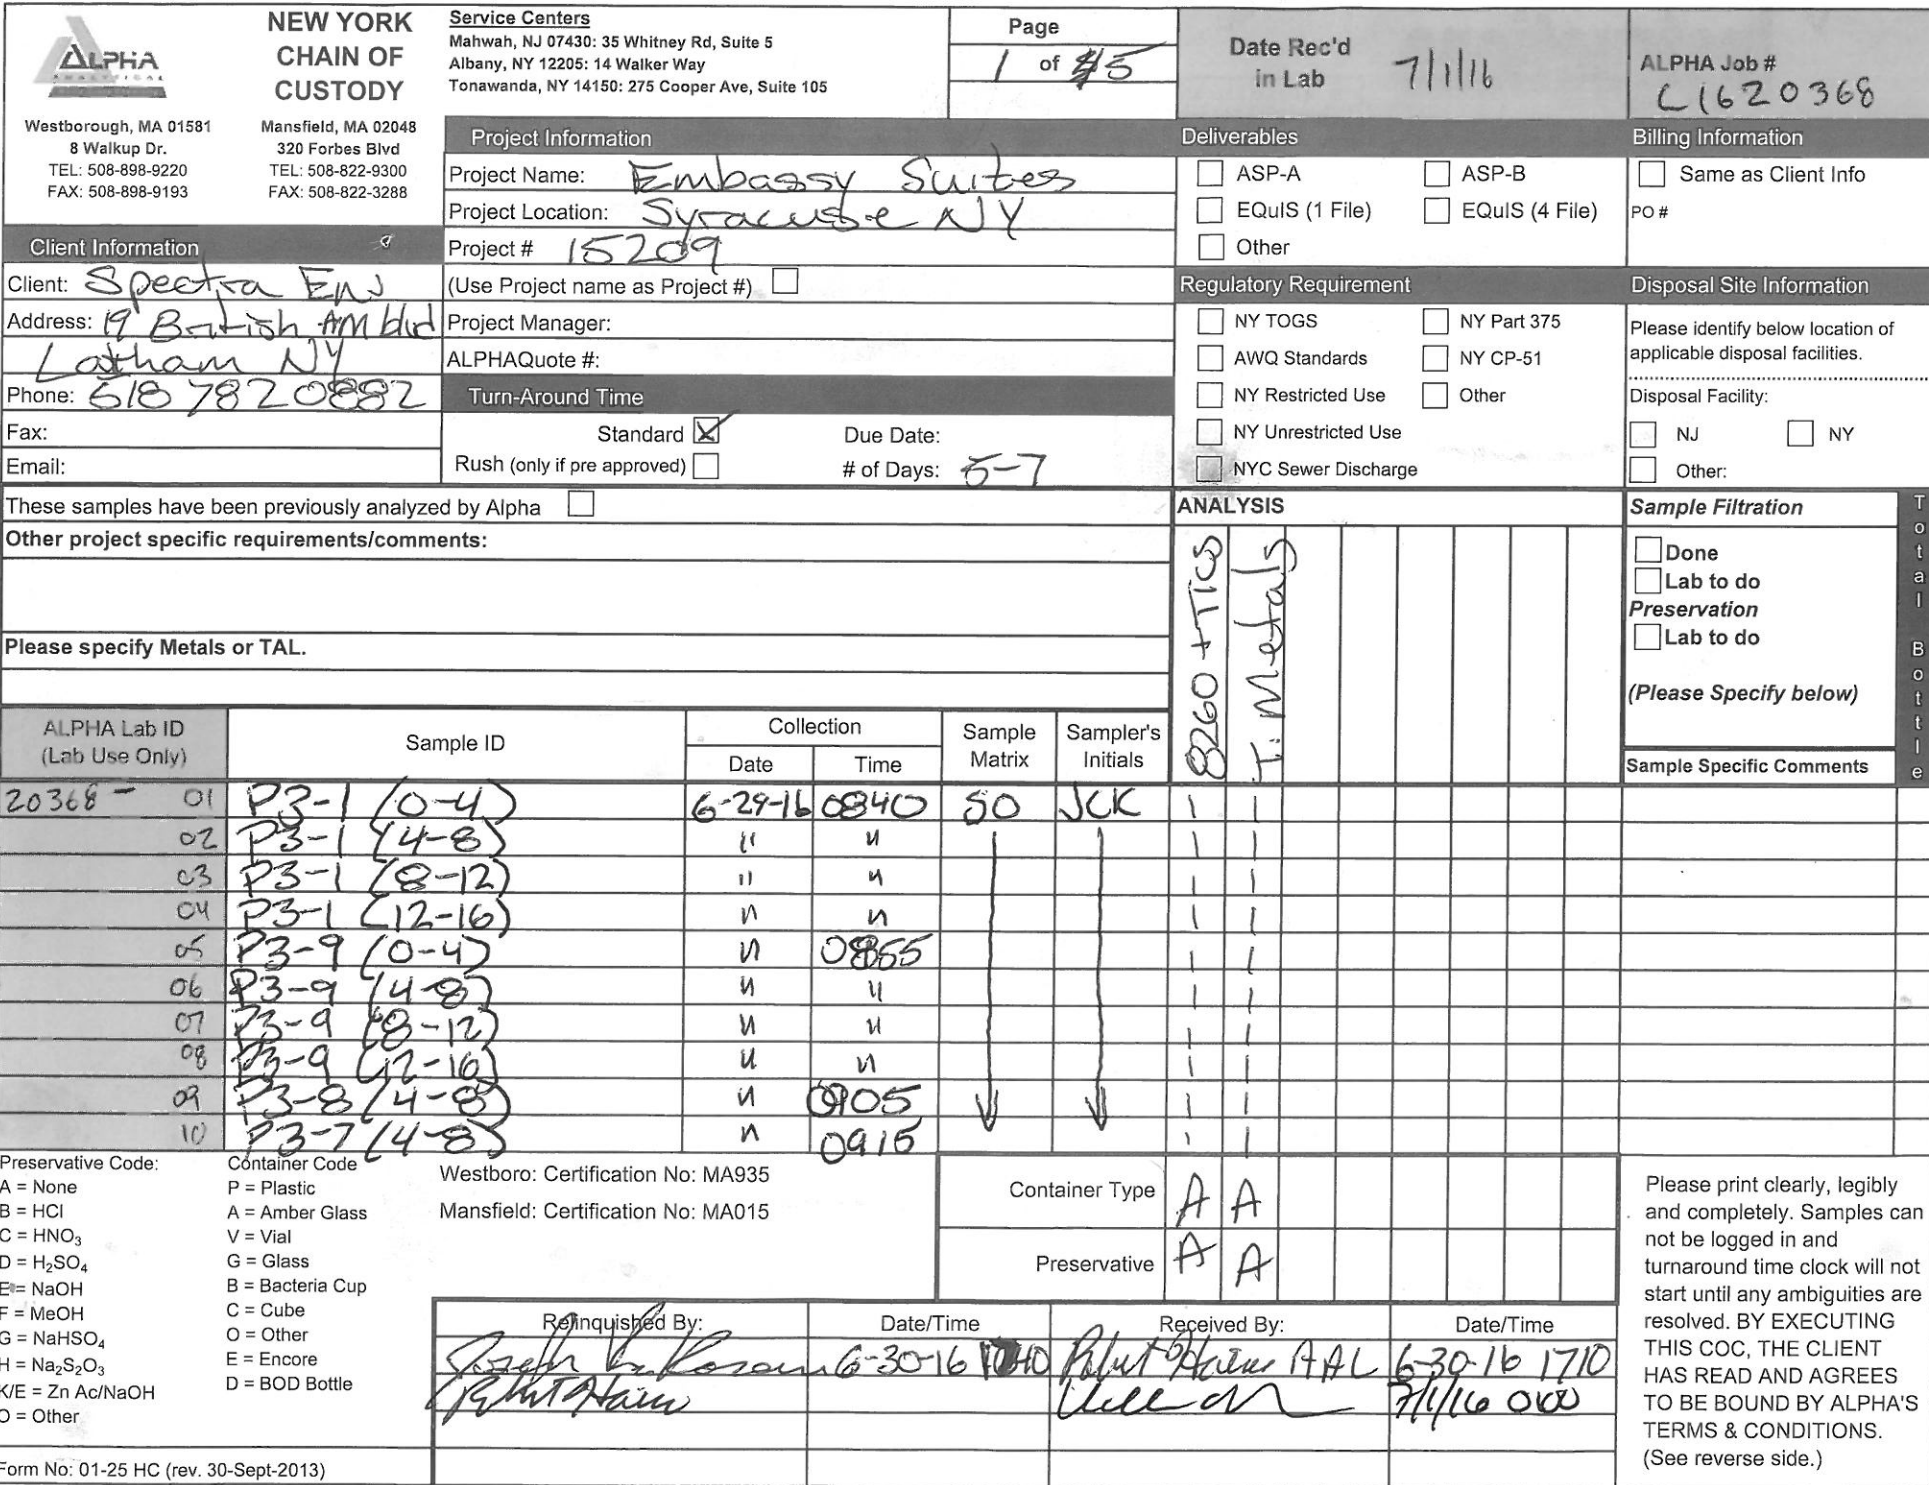 ALPHA
ANALYTICAL
Westborough, MA 01581
8 Walkup Dr.
TEL: 508-898-9220
FAX: 508-898-9193
NEW YORK
CHAIN OF
CUSTODY
Mansfield, MA 02048
320 Forbes Blvd
TEL: 508-822-9300
FAX: 508-822-3288
Service Centers
Mahwah, NJ 07430: 35 Whitney Rd, Suite 5
Albany, NY 12205: 14 Walker Way
Tonawanda, NY 14150: 275 Cooper Ave, Suite 105
Page
1 of 5
Date Rec'd
in Lab 7/1/16
ALPHA Job #
L1620368
Client Information
Client: Spectra Env
Address: 19 British AM blvd
Latham NY
Phone: 518 782 0882
Fax:
Email:
Project Information
Project Name: Embassy Suites
Project Location: Syracuse NY
Project # 15209
(Use Project name as Project #)
Project Manager:
ALPHAQuote #:
Turn-Around Time
Standard X Due Date:
Rush (only if pre approved) # of Days: 5-7
Deliverables
ASP-A ASP-B
EQuIS (1 File) EQuIS (4 File)
Other
Regulatory Requirement
NY TOGS NY Part 375
AWQ Standards NY CP-51
NY Restricted Use Other
NY Unrestricted Use
NYC Sewer Discharge
Billing Information
Same as Client Info
PO #
Disposal Site Information
Please identify below location of
applicable disposal facilities.
Disposal Facility:
NJ NY
Other:
These samples have been previously analyzed by Alpha
Other project specific requirements/comments:
Please specify Metals or TAL.
ANALYSIS
8260 + TICs
T. Metals
Sample Filtration
Done
Lab to do
Preservation
Lab to do
(Please Specify below)
Total Bottle
ALPHA Lab ID
(Lab Use Only)
Sample ID
Collection
Date Time
Sample
Matrix
Sampler's
Initials
Sample Specific Comments
20368 - 01 P3-1 (0-4) 6-29-16 0840 SO JCK 1 1
02 P3-1 (4-8) " " 1 1
03 P3-1 (8-12) " " 1 1
04 P3-1 (12-16) " " 1 1
05 P3-9 (0-4) " 0855 1 1
06 P3-9 (4-8) " " 1 1
07 P3-9 (8-12) " " 1 1
08 P3-9 (12-16) " " 1 1
09 P3-8 (4-8) " 0905 1 1
10 P3-7 (4-8) " 0915 1 1
Preservative Code:
A = None
B = HCl
C = HNO₃
D = H₂SO₄
E = NaOH
F = MeOH
G = NaHSO₄
H = Na₂S₂O₃
K/E = Zn Ac/NaOH
O = Other
Container Code
P = Plastic
A = Amber Glass
V = Vial
G = Glass
B = Bacteria Cup
C = Cube
O = Other
E = Encore
D = BOD Bottle
Westboro: Certification No: MA935
Mansfield: Certification No: MA015
Container Type A A
Preservative A A
Relinquished By: Date/Time Received By: Date/Time
6-30-16 AAL 6-30-16 1710
7/1/16
Please print clearly, legibly
and completely. Samples can
not be logged in and
turnaround time clock will not
start until any ambiguities are
resolved. BY EXECUTING
THIS COC, THE CLIENT
HAS READ AND AGREES
TO BE BOUND BY ALPHA'S
TERMS & CONDITIONS.
(See reverse side.)
Form No: 01-25 HC (rev. 30-Sept-2013)